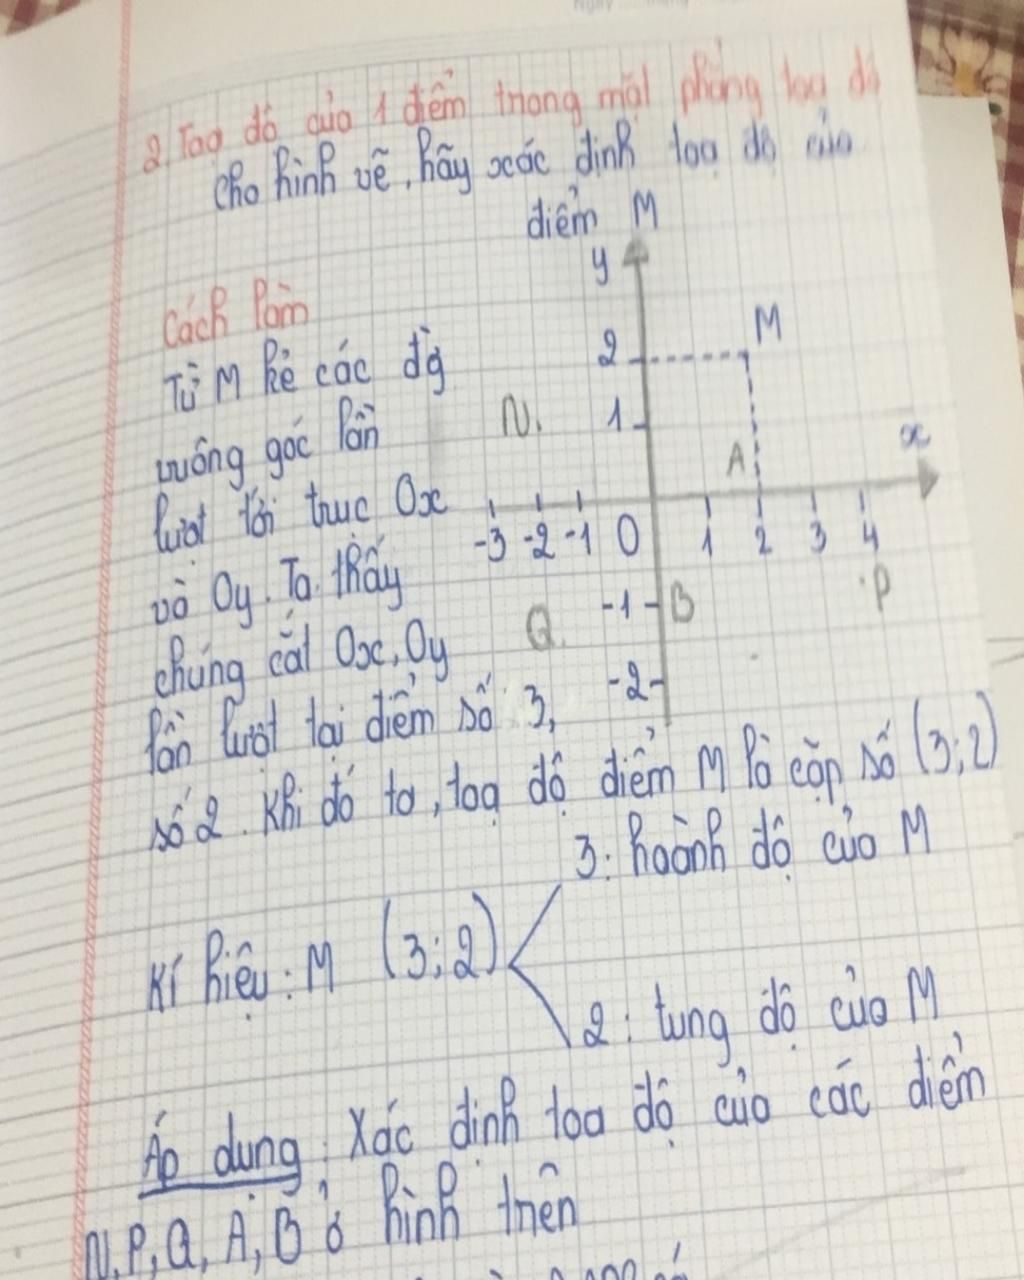 2. Toạ độ của 1 điểm trong mặt phẳng toạ độ
cho hình vẽ, hãy xác định toạ độ của
điểm M
y
Cách làm
M
2
Từ M kẻ các đg
vuông góc lần
N.
1
A
x
lượt tới trục Ox
-3 -2 -1 0 1 2 3 4
và Oy. Ta thấy
-1 B
P
chúng cắt Ox, Oy
Q
-2
lần lượt tại điểm số 3,
số 2. Khi đó ta, toạ độ điểm M là cặp số (3;2)
3: hoành độ của M
Kí hiệu: M (3;2)
2: tung độ của M
Áp dụng: Xác định toạ độ của các điểm
N, P, Q, A, B ở hình trên